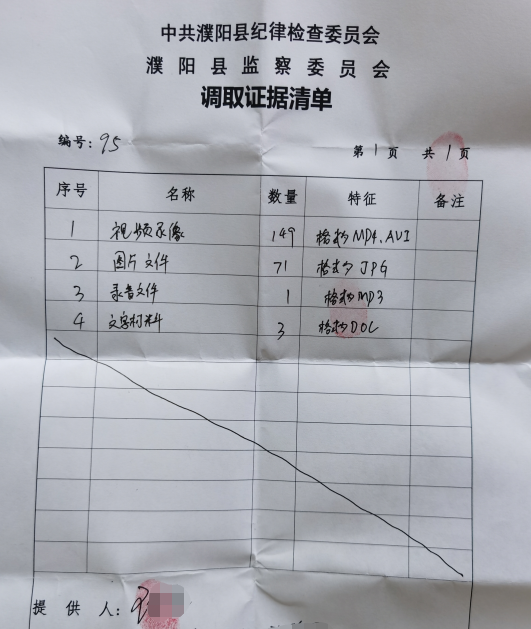 中共濮阳县纪律检查委员会
濮阳县监察委员会
调取证据清单
编号：95 第1页 共1页
序号 名称 数量 特征 备注
1 视频录像 149 格式为MP4、AVI
2 图片文件 71 格式为JPG
3 录音文件 1 格式为MP3
4 文字材料 3 格式为DOC
提供人：